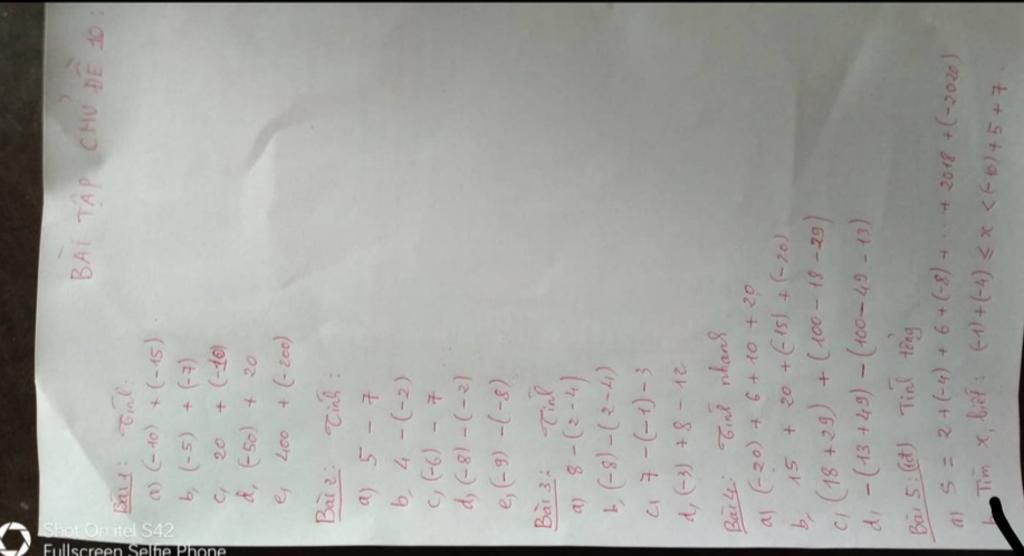 BÀI TẬP CHỦ ĐỀ 10:
Bài 1: Tính:
a) (-10) + (-15)
b, (-5) + (-7)
c, 20 + (-10)
d, (-50) + 20
e, 400 + (-200)
Bài 2: Tính:
a) 5 - 7
b, 4 - (-2)
c, (-6) - 7
d, (-8) - (-2)
e, (-9) - (-8)
Bài 3: Tính
a) 8 - (2 - 4)
b, (-8) - (2 - 4)
c, 7 - (-1) - 3
d, (-3) + 8 - 12
Bài 4: Tính nhanh
a) (-20) + 6 + 10 + 20
b, 15 + 20 + (-15) + (-20)
c, (18 + 29) + (100 - 18 - 29)
d, - (13 + 49) - (100 - 49 - 13)
Bài 5: Tính tổng
a) S = 2 + (-4) + 6 + (-8) + ... + 2018 + (-2020)
Tìm x, biết: (-1) + (-4) ≤ x < (-10) + 5 + 7.
Shot On itel S42
Fullscreen Selfie Phone